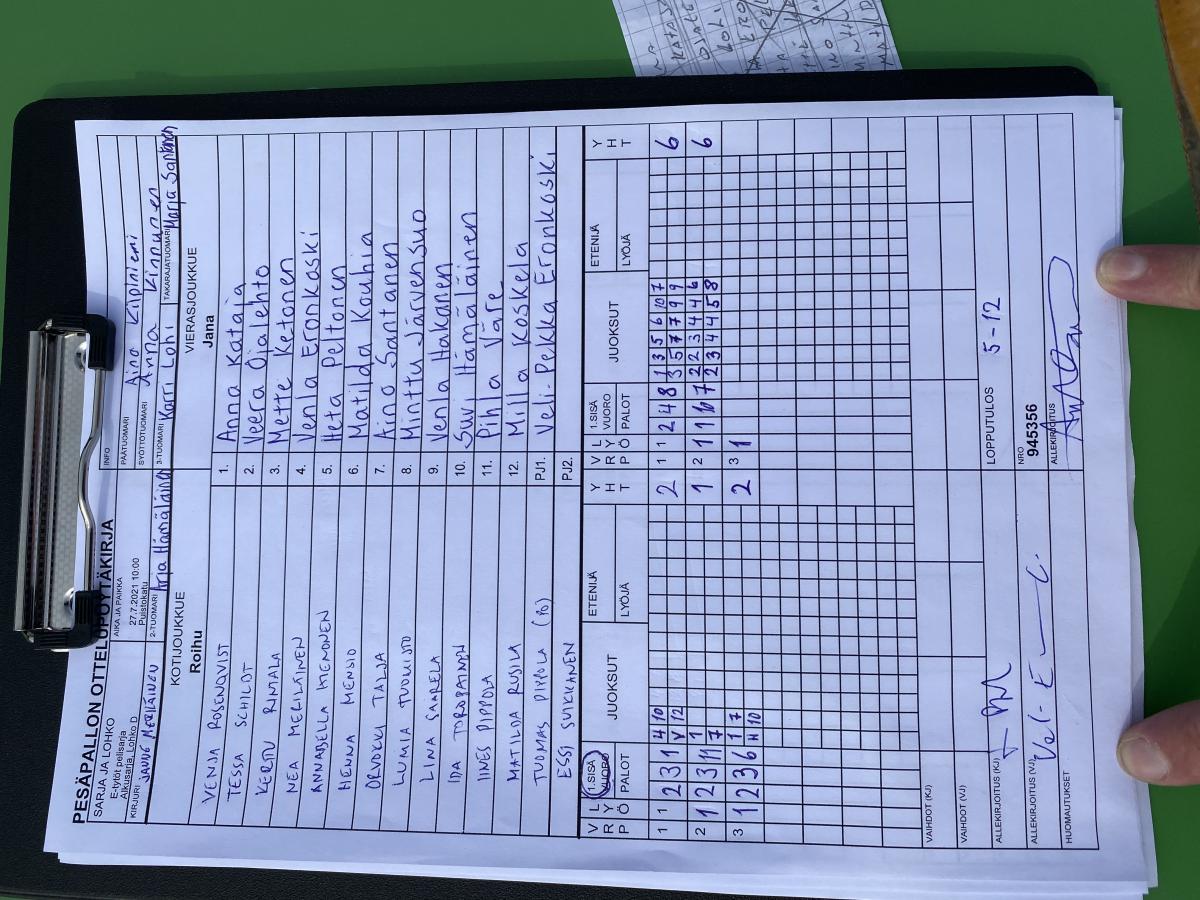 PESÄPALLON OTTELUPÖYTÄKIRJA
SARJA JA LOHKO
E-tytöt pelisarja
Alkusarja, Lohko D
AIKA JA PAIKKA
27.7.2021 10:00
Puistokatu
INFO
PÄÄTUOMARI Aino Kilpiniemi
SYÖTTÖTUOMARI Anna Kinnunen
KIRJURI JANNE MERILÄINEN
2-TUOMARI Arja Hämäläinen
3-TUOMARI Karri Lohi
TAKARAJATUOMARI Marja Santanen
KOTIJOUKKUE
Roihu
VIERASJOUKKUE
Jana
VENJA ROSENQVIST 1. Anna Kataja
TESSA SCHILDT 2. Veera Ojalehto
KERTTU RIMALA 3. Mette Ketonen
NEA MERILÄINEN 4. Venla Eronkoski
ANNABELLA MENONEN 5. Heta Peltonen
HENNA MENSIO 6. Matilda Kouhia
ORVOKKI TALJA 7. Aino Santanen
LUMIA TUOMISTO 8. Minttu Järvensuo
LIINA SAARELA 9. Venla Hakanen
IDA TOROPAINEN 10. Suvi Hämäläinen
IINES PIPPOLA 11. Pihla Väre
MATILDA RUSILA 12. Milla Koskela
TUOMAS PIPPOLA (PJ) PJ1. Veli-Pekka Eronkoski
ESSI SUIKKANEN PJ2.
VRP LYÖ 1.SISÄ VUORO PALOT JUOKSUT ETENIJÄ LYÖJÄ YHT VRP LYÖ 1.SISÄ VUORO PALOT JUOKSUT ETENIJÄ LYÖJÄ YHT
1 1 2 3 1 4 10 2 1 1 2 4 8 1 3 5 6 10 7 6
V 12 3 5 7 7 9 9
2 1 2 3 11 1 1 2 11 7 2 2 3 4 4 6 6
7 2 3 4 4 5 8
3 1 2 3 6 1 7 2 3 1
H 10
VAIHDOT (KJ)
VAIHDOT (VJ)
ALLEKIRJOITUS (KJ)
LOPPUTULOS 5-12
ALLEKIRJOITUS (VJ)
NRO
945356
HUOMAUTUKSET
ALLEKIRJOITUS